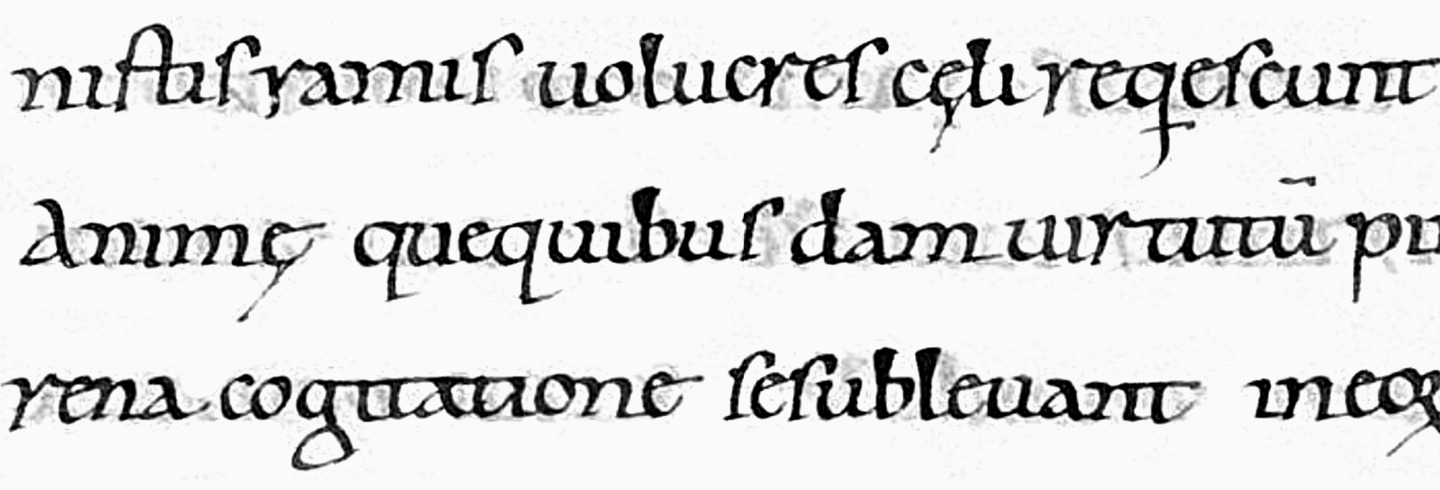 nistis ramis uolucres cęli reqescunt
Animę quequibus dam uirtutū
rena cogitatione sesubleuant ineoꝝ